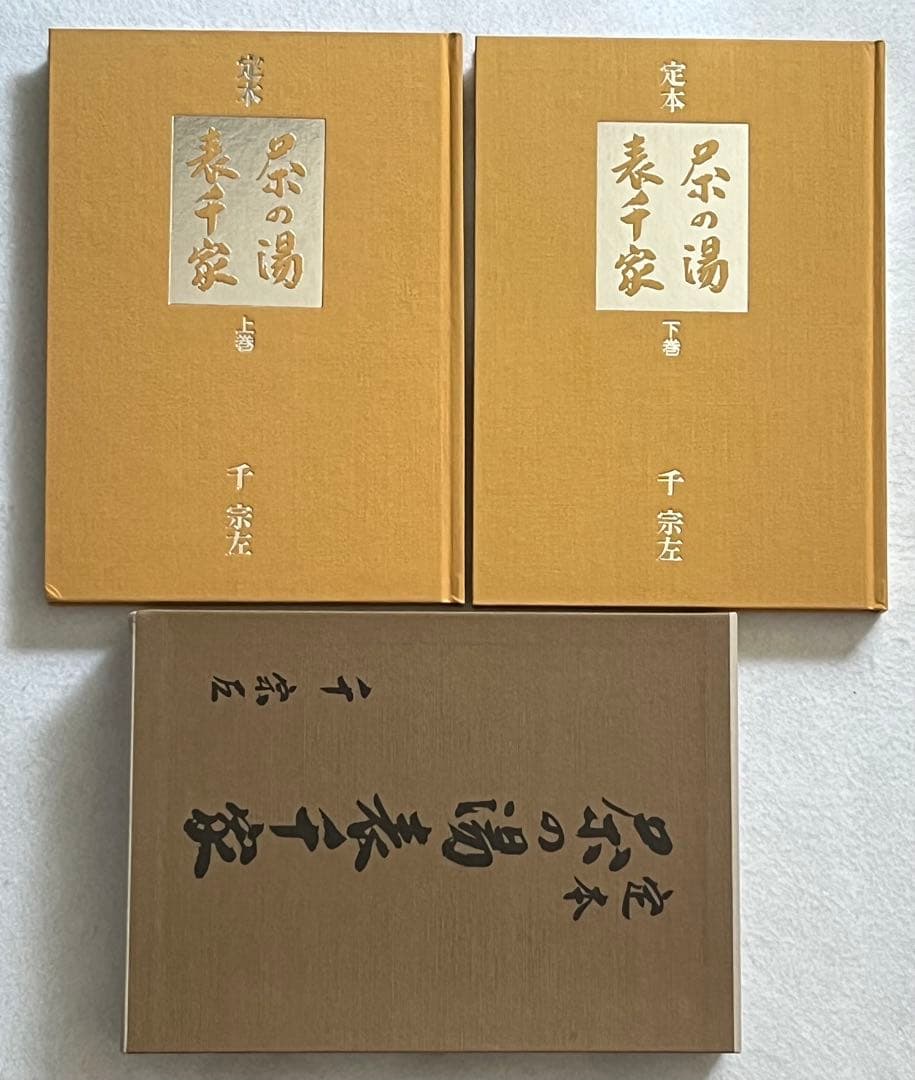 定本
茶の湯
表千家
上巻
千 宗左
定本
茶の湯
表千家
下巻
千 宗左
定本
茶の湯 表千家
千 宗左